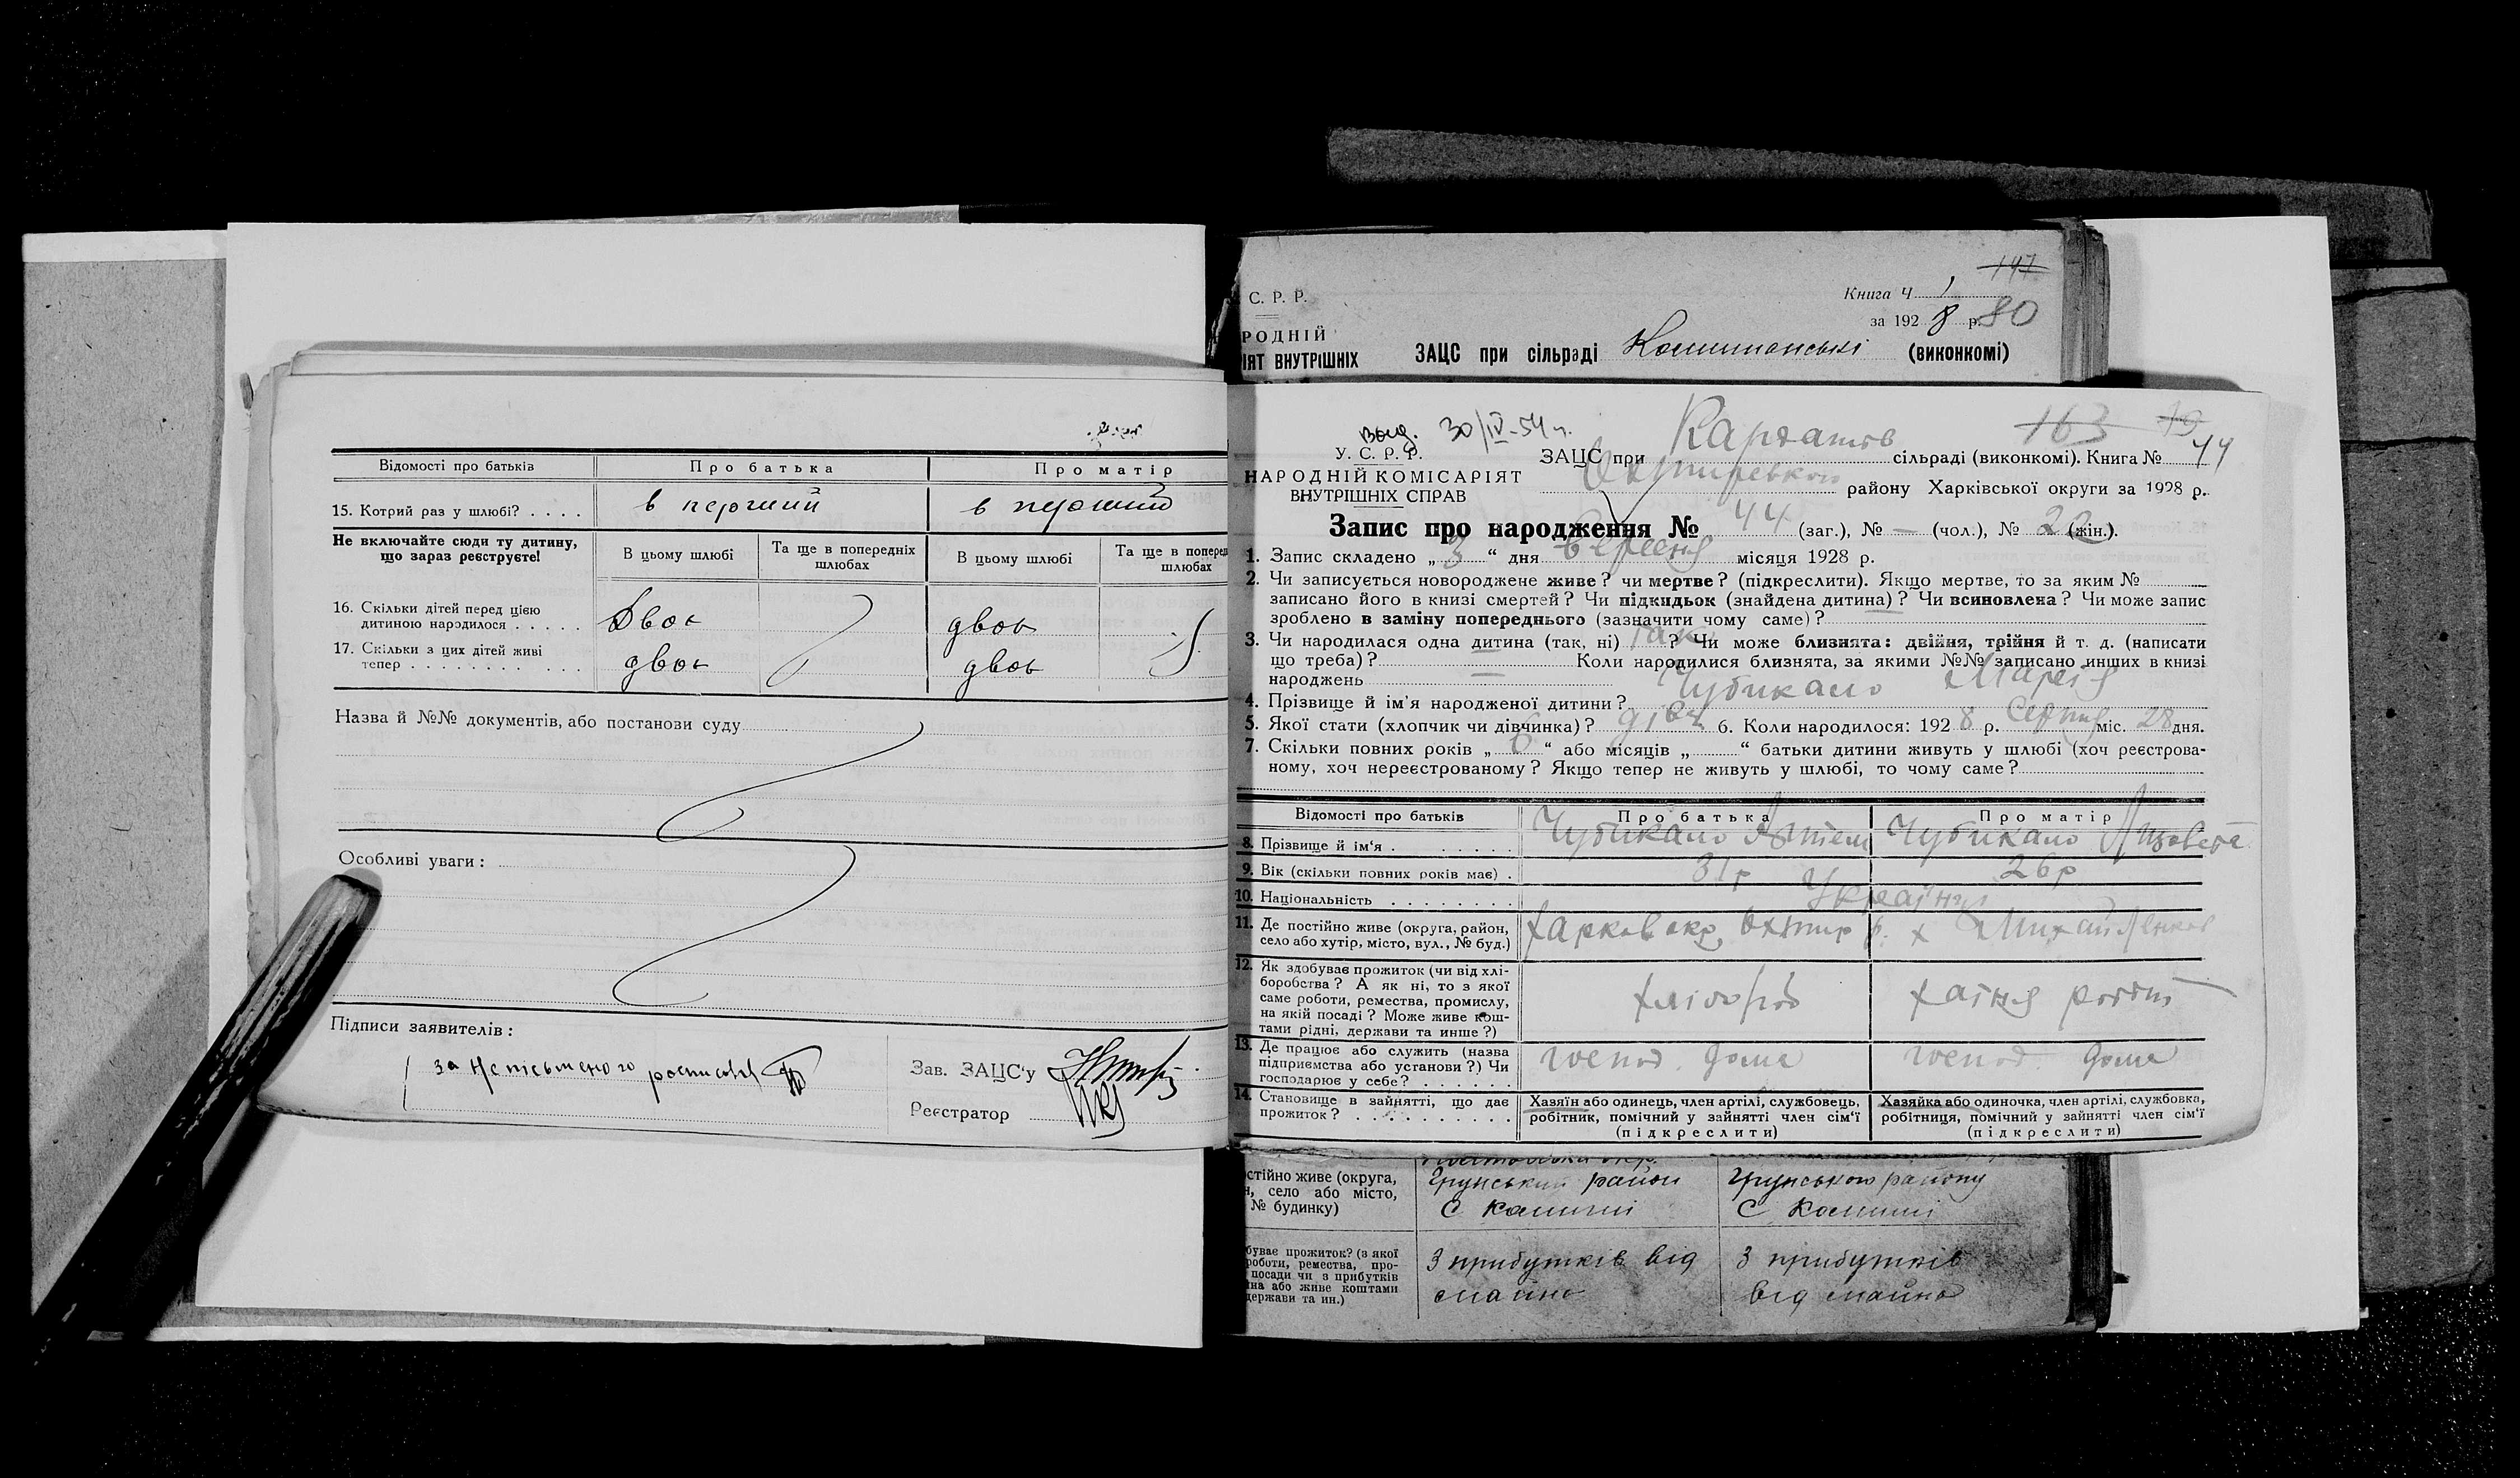 Відомості про батьків Про батька Про матір
15. Котрий раз у шлюбі? . . . . в перший в перший
Не включайте сюди ту дитину, що зараз реєструєте!
В цьому шлюбі Та ще в попередніх шлюбах В цьому шлюбі Та ще в поперед шлюбах
16. Скільки дітей перед цією
дитиною народилося . . . . . Двоє двоє
17. Скільки з цих дітей живі
тепер . . . . . . . . . . . двоє двоє
Назва й №№ документів, або постанови суду
Особливі уваги :
Підписи заявителів :
за неписьменого
Зав. ЗАЦС'у
Реєстратор
С. Р. Р.
РОДНІЙ
ІЯТ ВНУТРІШНІХ
147
Книга Ч 1
за 1928 р. 80
ЗАЦС при сільраді (виконкомі)
30/IV-54 р.
163 19
У. С. Р. Р.
НАРОДНІЙ КОМІСАРІЯТ
ВНУТРІШНІХ СПРАВ
ЗАЦС при сільраді (виконкомі). Книга № 44
району Харківської округи за 1928 р.
Запис про народження № 44 (заг.), № — (чол.), № 22 (жін.).
1. Запис складено „ 3 “ дня Вересня місяця 1928 р.
2. Чи записується новороджене живе? чи мертве? (підкреслити). Якщо мертве, то за яким №
записано його в книзі смертей? Чи підкидьок (знайдена дитина)? Чи всиновлена? Чи може запис
зроблено в заміну попереднього (зазначити чому саме)?
3. Чи народилася одна дитина (так, ні) так ? Чи може близнята: двійня, трійня й т. д. (написати
що треба)? Коли народилися близнята, за якими №№ записано инших в книзі
народжень —
4. Прізвище й ім'я народженої дитини? Чубикало Марія
5. Якої стати (хлопчик чи дівчинка)? дівч 6. Коли народилося: 1928 р. Серпня міс. 28 дня.
7. Скільки повних років „ 6 “ або місяців „ “ батьки дитини живуть у шлюбі (хоч реєстрова-
ному, хоч нереєстрованому? Якщо тепер не живуть у шлюбі, то чому саме?
Відомості про батьків Про батька Про матір
8. Прізвище й ім'я . . . . . . . Чубикало Артем Чубикало Лизовета
9. Вік (скільки повних років має) . 31р 26р
10. Національність . . . . . . . . Українці
11. Де постійно живе (округа, район,
село або хутір, місто, вул., № буд.) Харков окр. Охтир р. х Михайленков
12. Як здобуває прожиток (чи від хлі-
боробства? А як ні, то з якої
саме роботи, ремества, промислу,
на якій посаді? Може живе кош-
тами рідні, держави та инше?)
хлібороб хатня
13. Де працює або служить (назва
підприємства або установи?) Чи
господарює у себе? . . . . . .
господ. дома господ. дома
14. Становище в зайнятті, що дає
прожиток? . . . . . . . . . .
Хазяїн або одинець, член артілі, службовець,
робітник, помічний у зайнятті член сім'ї
(підкреслити)
Хазяйка або одиночка, член артілі, службовка,
робітниця, помічний у зайнятті член сім'ї
(підкреслити)
стійно живе (округа,
н, село або місто,
№ будинку)
Грунський район
С Комиші
Грунського району
С Комиші
буває прожиток? (з якої
роботи, ремества, про-
посади чи з прибутків
йна або живе коштами
держави та ин.)
З прибутків від
майна
З прибутків
від майна